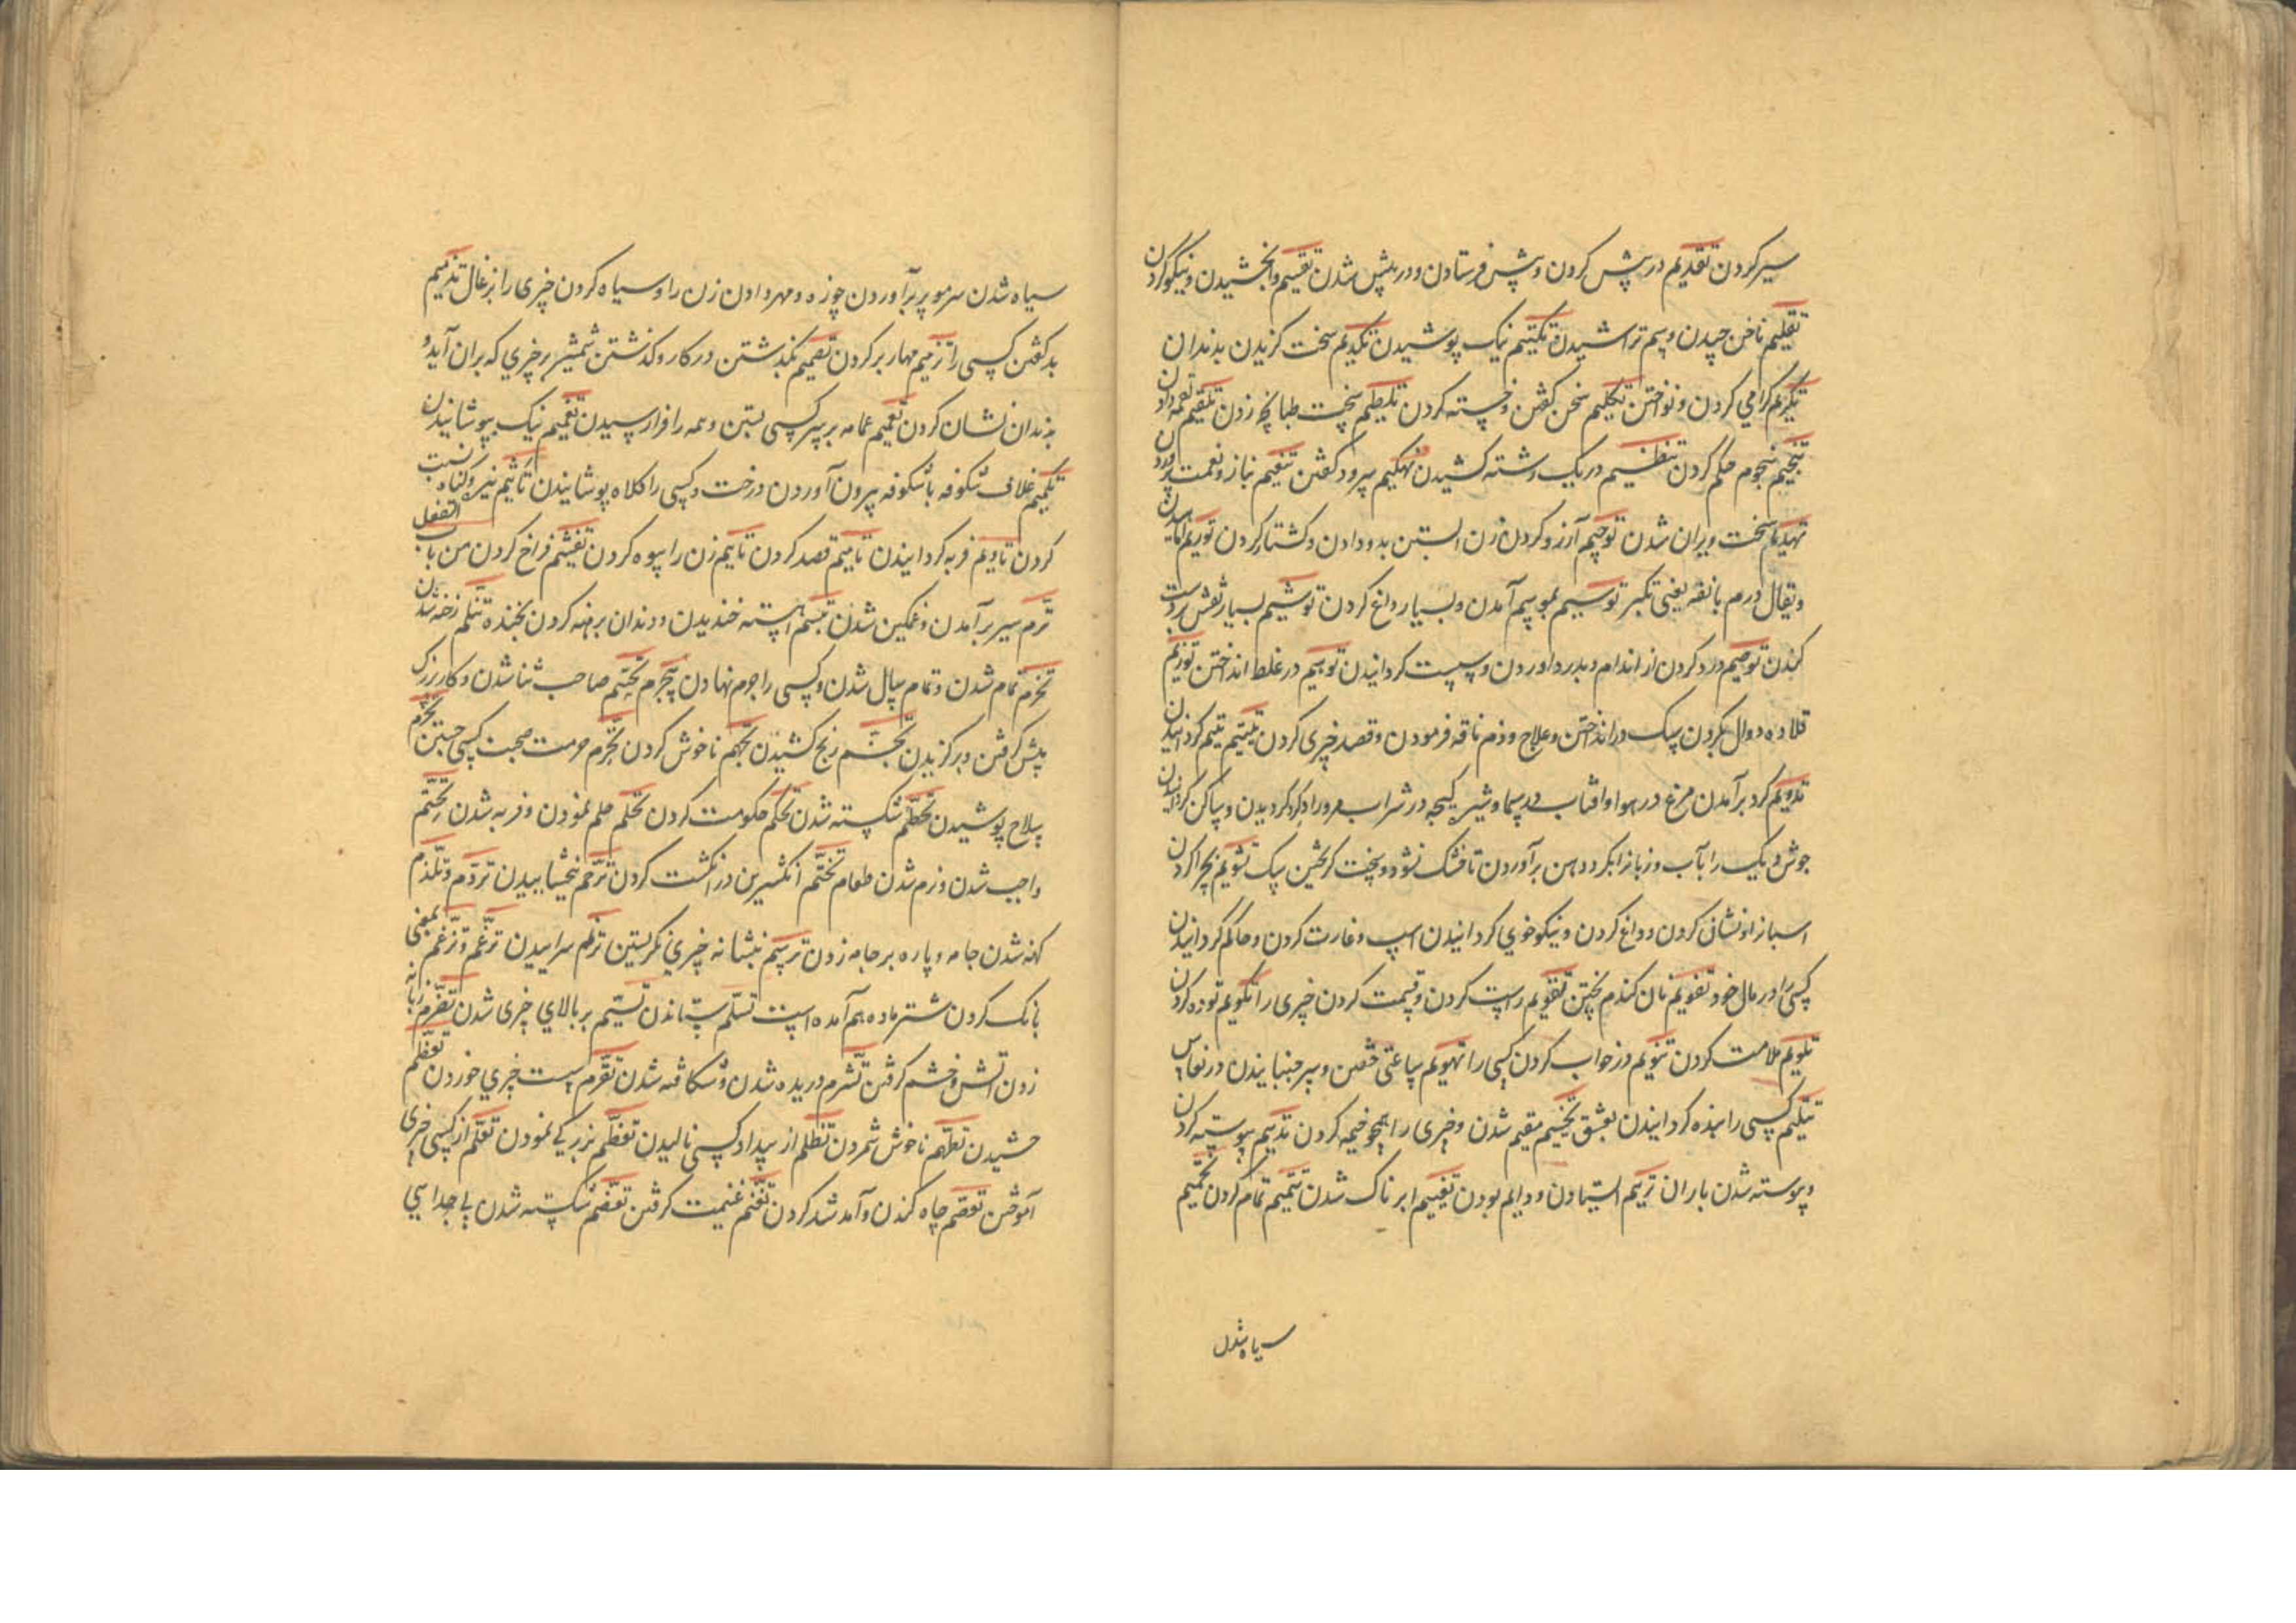 سیر کردن تقدیم در پیش کردن و پیش فرستادن و در پیش شدن تقسیم وابخشیدن و نیکو کردن
تقلیم ناخن چیدن و سم تراشیدن تکتیم نیک پوشیدن تکدیم سخت گزیدن بدندان
تکریم گرامی کردن و نواختن تکلیم سخن گفتن و خسته کردن تلطیم سخت طپانچه زدن تلقیم لقمه دادن
تنجیم بنجوم حکم کردن تنظیم در یک رشته کشیدن تهکیم سرود گفتن تنعیم بناز و نعمت پروردن
تهدیم سخت ویران شدن توحیم آرزو کردن زن آبستن بدو دادن و کشتار کردن توریم آماسیدن
و یقال ورم بانفه یعنی تکبر توسیم بموسم آمدن و بسیار داغ کردن توشیم بسیار نقش بر دست
کندن توصیم درد کردن از اندام و بدرد آوردن و سست گردانیدن توهیم در غلط انداختن توزیم
قلاده دوال بگردن سگ در انداختن و علاج و ذم ناقه فرمودن و قصد چیزی کردن تیتیم یتیم گردانیدن
تدویم گرد برآمدن مرغ در هوا و آفتاب در سما و شیر گیجه در شراب مرورا و گرد گردیدن و ساکن گردانیدن
جوش دیگ را بآب و زبانرا بگرد دهن برآوردن تا خشک نشود و سخت گریختن سگ تسویم بچرا کردن
اسبانرا و نشانی کردن و داغ کردن و نیکوخوی گردانیدن اسپ و غارت کردن و حاکم گردانیدن
کسی را در مال خود تفویم نان گندم پختن تقویم راست کردن و قیمت کردن چیزی را تکویم توده کردن
تلویم ملامت کردن تنویم در خواب کردن کسی را تهویم ساعتی خفتن و سر جنبانیدن در نعاس
تتییم کسی را بنده گردانیدن بعشق تخییم مقیم شدن و چیزی را همچو خیمه کردن تدییم پیوسته کردن
و پیوسته شدن باران ترییم استادن و دایم بودن تغییم ابرناک شدن تتمیم تمام کردن تحمیم
سیاه شدن
سیاه شدن سر مو پر برآوردن چوزه و مهر دادن زن را و سیاه کردن چیزی را بزغال تذمیم
بد گفتن کسی را تزمیم مهار بر کردن تصمیم بگذشتن در کار و گذشتن شمشیر بر چیزی که بران آید و
بدندان نشان کردن تعمیم عمامه بر سر کسی بستن و همه را فرا رسیدن تغمیم نیک بپوشانیدن
تکمیم غلاف شکوفه با شکوفه بیرون آوردن درخت و کسی را کلاه پوشانیدن تاثیم بگناه نسبت
کردن تاویم فربه گردانیدن تامیم قصد کردن تاییم زن را بیوه کردن تفشیم فراخ کردن من باب التفعل
تبرم سیر برآمدن و غمگین شدن تبسم آهسته خندیدن و دندان برهنه کردن بخنده تثلم رخنه شدن
تجرم تمام شدن و تمام سال شدن و کسی را جرم نهادن تجشم صاحب ثنا شدن و کار بزرگ
پیش گرفتن و برگزیدن تجشم رنج کشیدن تجهم ناخوش کردن تحرم حرمت صحبت کسی جستن تحزم
سلاح پوشیدن تحطم شکسته شدن تحکم حکومت کردن تحلم حلم نمودن و فربه شدن تحتم
واجب شدن و نرم شدن طعام تختم انگشترین در انگشت کردن ترحم بخشاییدن تردم و تلدم
کهنه شدن جامه و پاره بر جامه زدن ترسم بنشانه چیزی نگریستن ترنم سراییدن ترغم و تزغم بمعنی
بانگ کردن شتر ماده هم آمده است تسلم ستاندن تسنم بر بالای چیزی شدن تضرم زبانه
زدن آتش و خشم گرفتن تشرم دریده شدن و شکافته شدن تقرم سست چیزی خوردن تعظم
چشیدن تطهم ناخوش شمردن تظلم از بیداد کسی نالیدن تعظم بزرگی نمودن تعلم از کسی چیزی
آموختن تعقم چاه کندن و آمد شد کردن تغنم غنیمت گرفتن تفصم شکسته شدن بی جدایی